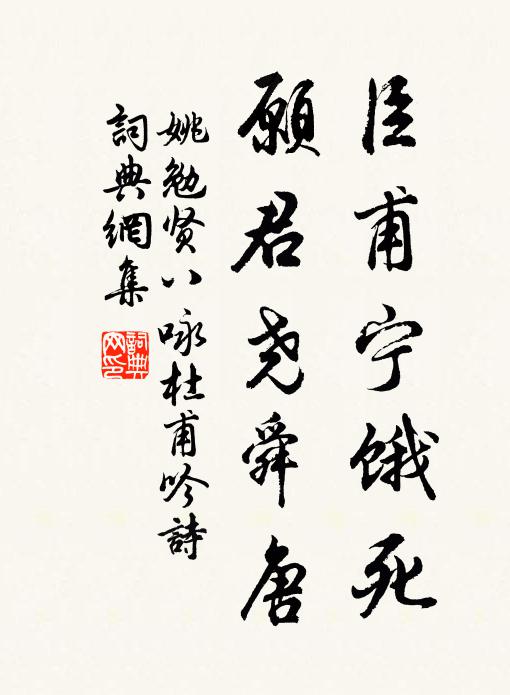 臣甫宁饿死
願君尧舜唐
姚勉贤八咏杜甫吟詩
詞典網集
詞典網印